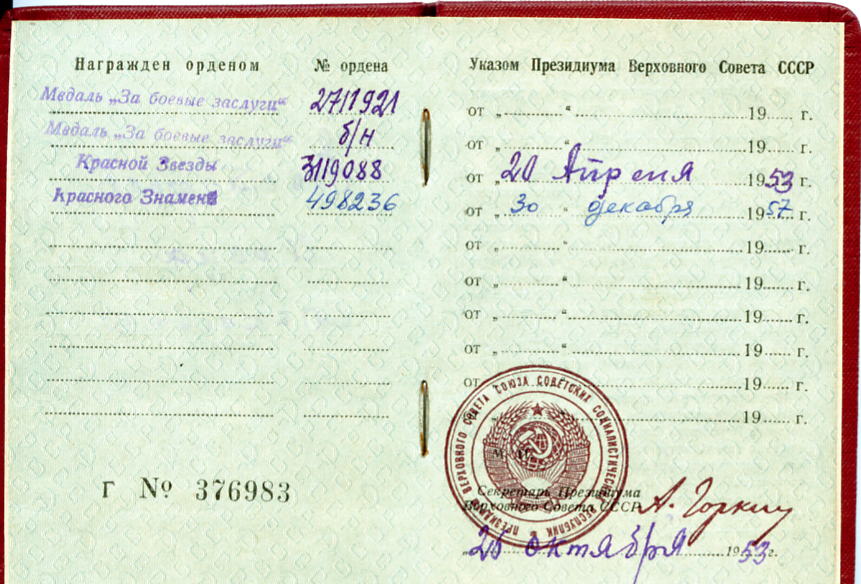 Награжден орденом
№ ордена
Медаль „За боевые заслуги“
2711921
Медаль „За боевые заслуги“
б/н
Красной Звезды
3119088
Красного Знамени
498236
Г № 376983
Указом Президиума Верховного Совета СССР
от „ “ 19 г.
от „ “ 19 г.
от „20 Апреля 1953 г.
от „30 “ декабря 1957 г.
от „ “ 19 г.
от „ “ 19 г.
от „ “ 19 г.
от „ “ 19 г.
от 19 г.
“ 19 г.
ПРЕЗИДИУМ ВЕРХОВНОГО СОВЕТА СОЮЗА СОВЕТСКИХ СОЦИАЛИСТИЧЕСКИХ РЕСПУБЛИК
М. П.
Секретарь Президиума
Верховного Совета СССР
А. Горкин
„26 октября 1953 г.